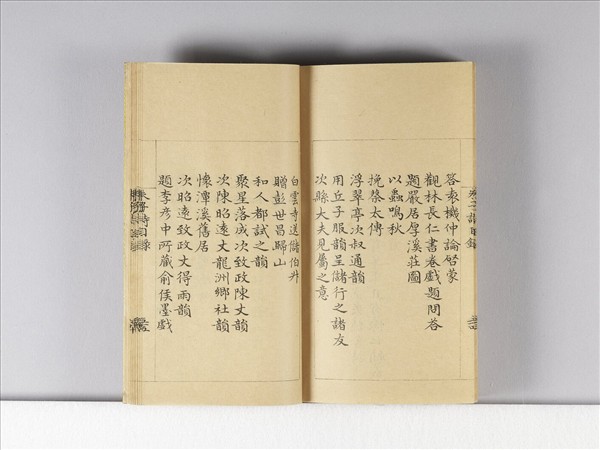 答袁機仲論啓蒙
觀林長仁書卷戲題問答
題嚴居厚溪莊圖
以蟲鳴秋
挽蔡太傅
浮翠亭次叔通韻
用丘子服韻呈儲行之諸友
次縣大夫見屬之意
白雲寺送儲伯升
贈彭世昌歸山
和人都試之韻
聚星落成次致政陳丈韻
次陳昭遠丈龍洲鄉社韻
懷潭溪舊居
次昭遠致政丈得雨韻
題李彦中所藏俞侯墨戲